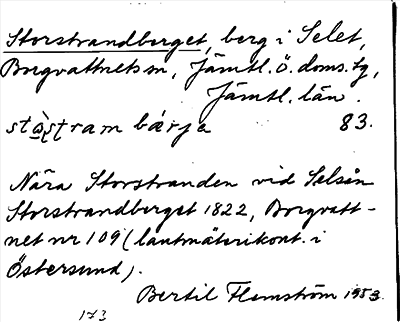 Storstrandberget, berg i Selet,
Borgvattnets sn, Jämtl. ö. doms. tg,
Jämtl. län.
bárja 83.
Nära Storstranden vid Selsån
Storstrandberget 1822, Borgvatt-
net nr 109 (lantmäterikont. i
Östersund).
Bertil Flemström 1953.
173